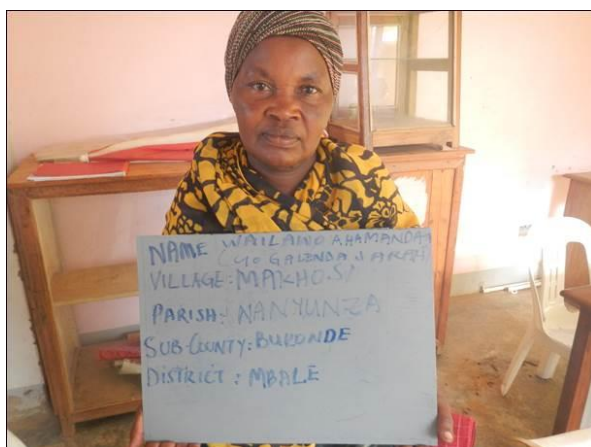 NAME WAILAWO AHAMANDA
C/O GALENDA SARAH
VILLAGE: MAKHOSI
PARISH: NANYUNZA
SUB-COUNTY: BUKONDE
DISTRICT: MBALE